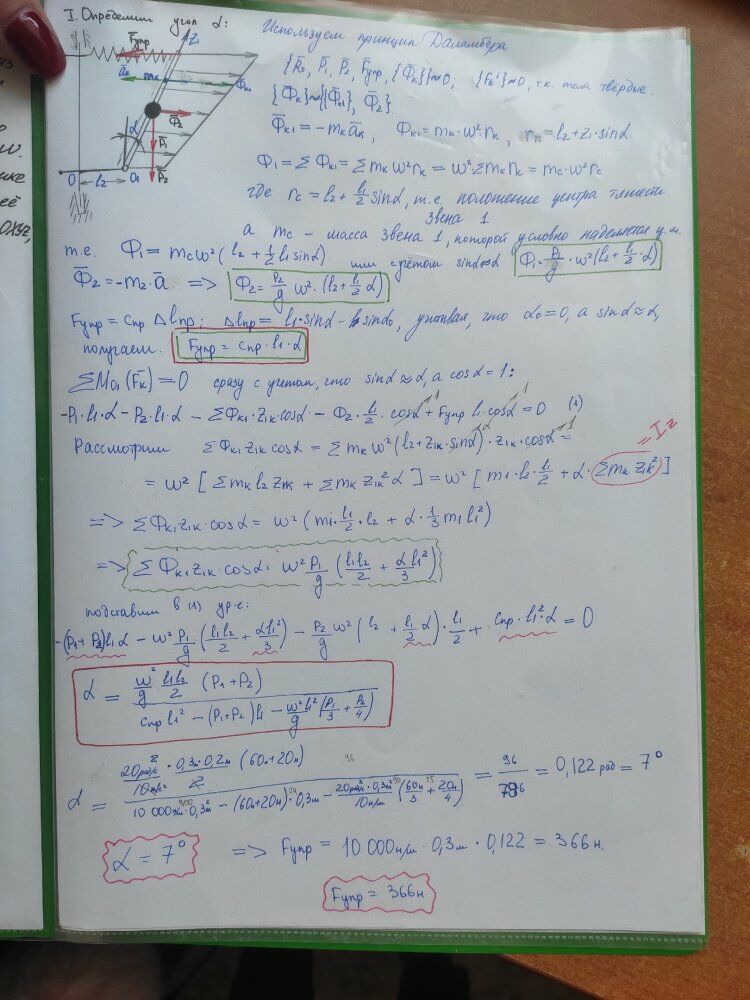 I. Определим угол α:
Используем принцип Даламбера
{R̄₀, P̄₁, P̄₂, F̄упр, {Φ̄к}}∾0; {Fкⁱ}∾0, т.к. тела твёрдые.
{Φ̄к}∾{{Φ̄к1}, Φ̄₂}
Φ̄к1 = -mк āк, Φк1 = mк·ω²·rк, rк = l₂+z₁·sinα
Φ₁ = ΣΦк1 = Σmкω²rк = ω²Σmкrк = mc·ω²rc
где rc = l₂ + l₁/2 sinα, т.е. положение центра тяжести
звена 1
а mc – масса звена 1, которой условно наделяется ц.м.
т.е. Φ₁ = mcω²(l₂ + 1/2 l₁ sinα) или с учётом sinα≈α Φ₁ = P₁/g · ω²(l₂ + l₁/2 · α)
Φ̄₂ = -m₂·ā => Φ₂ = P₂/g ω²·(l₂ + l₁/2 α)
Fупр = Cпр Δlпр; Δlпр = l₁·sinα - l₁ sinα₀, учитывая, что α₀=0, а sinα≈α,
получаем. Fупр = Cпр·l₁·α
ΣM₀₁(F̄к) = 0 сразу с учетом, что sinα≈α, а cosα = 1:
-P₁·l₁·α - P₂·l₁·α - ΣΦк1·z1к·cosα - Φ₂·l₁/2·cosα + Fупр l₁·cosα = 0 (1)
Рассмотрим ΣΦк1 z1к cosα = Σmк ω²(l₂+z1к·sinα)·z1к·cosα =
= ω²[Σmк l₂ z1к + Σmк z1к² α] = ω²[m₁·l₂·l₁/2 + α·Σmк z1к²] = Iz
=> ΣΦк1 z1к·cosα = ω²(m₁·l₁/2·l₂ + α·1/3 m₁l₁²)
=> ΣΦк1 z1к·cosα = ω² P₁/g (l₁l₂/2 + αl₁²/3)
подставим в (1) ур-е:
-(P₁+P₂)l₁α - ω² P₁/g (l₁l₂/2 + αl₁²/3) - P₂/g ω²(l₂ + l₁/2 α)·l₁/2 + Cпр·l₁²·α = 0
α = (ω²/g l₁l₂/2 (P₁+P₂)) / (Cпр l₁² - (P₁+P₂)l₁ - ω²l₁²/g (P₁/3 + P₂/4))
α = (20рад/с²/10м/с² · 0,3м·0,2м/2 (60н+20н)) / (10 000н/м·0,3м² - (60н+20н)·0,3м - 20рад/с²·0,3м²/10м/с² (60н/3 + 20н/4)) = 96/786 = 0,122 рад = 7°
α = 7° => Fупр = 10 000н/м·0,3м·0,122 = 366н.
Fупр = 366н